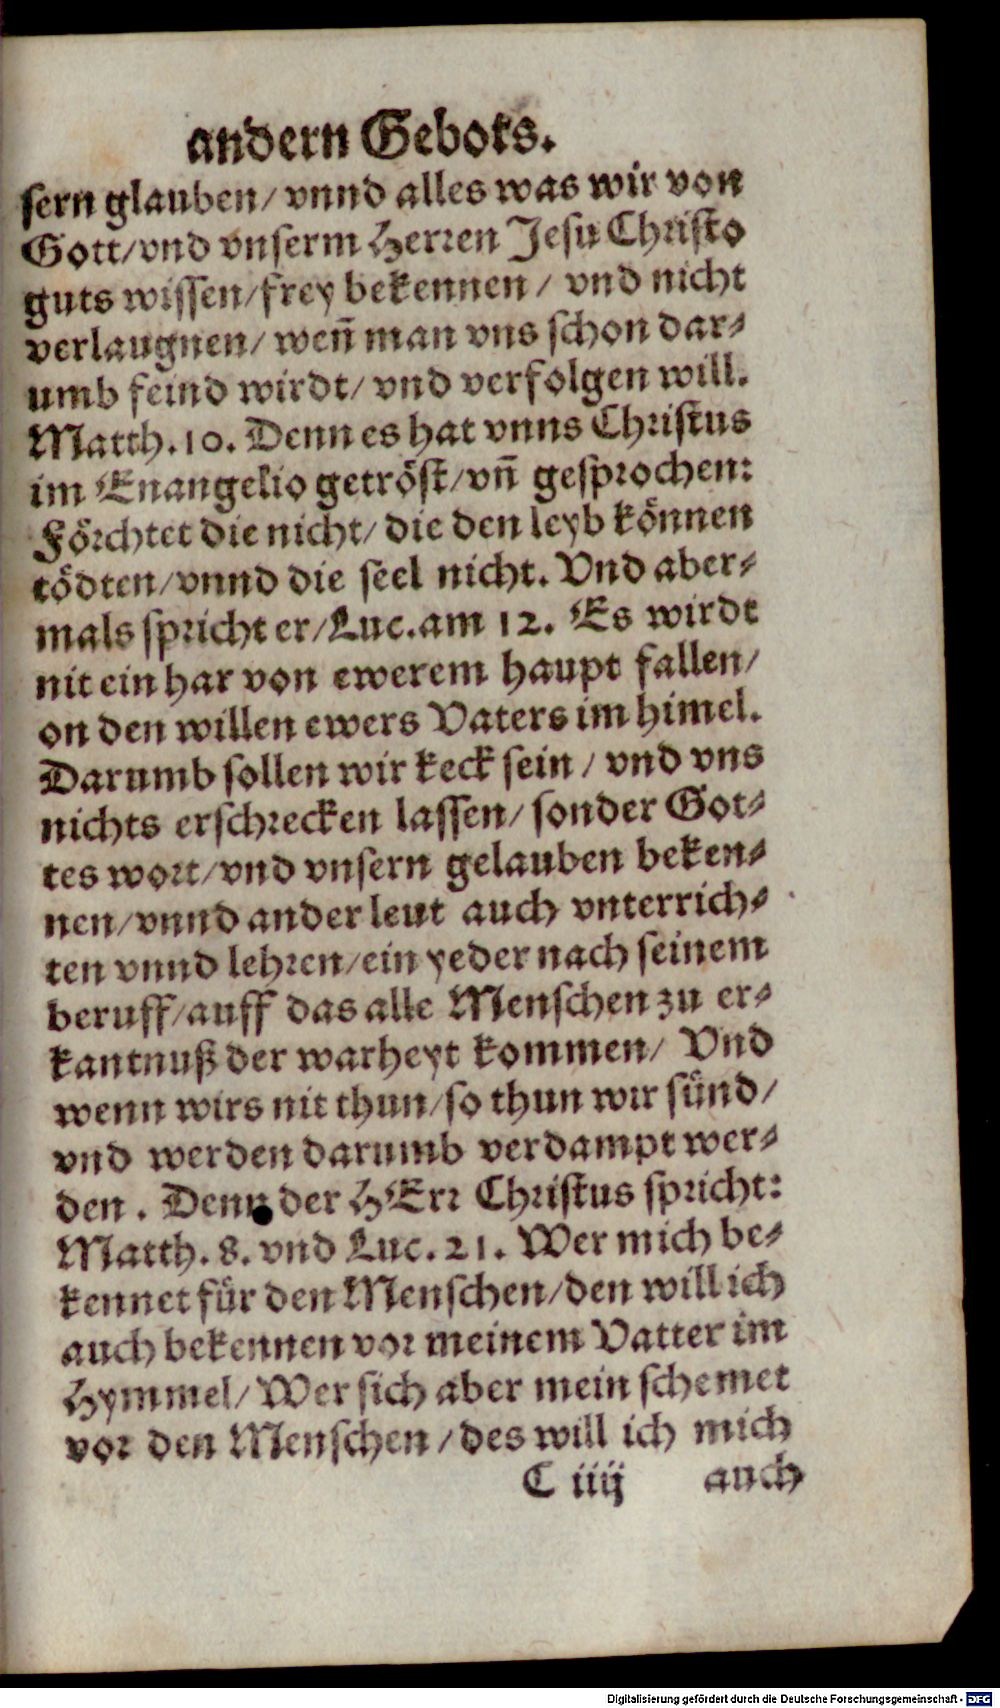 andern Gebots.
sern glauben/ vnnd alles was wir von
Gott/vnd vnserm Herren Jesu Christo
guts wissen/frey bekennen/ vnd nicht
verlaugnen/ weñ man vns schon dar-
umb feind wirdt/ vnd verfolgen will.
Matth.10. Denn es hat vnns Christus
im Enangelio getröst/vñ gesprochen:
Förchtet die nicht/ die den leyb können
tödten/vnnd die seel nicht. Vnd aber-
mals spricht er/Luc.am 12. Es wirdt
nit ein har von ewerem haupt fallen/
on den willen ewers Vaters im himel.
Darumb sollen wir keck sein/ vnd vns
nichts erschrecken lassen/ sonder Got-
tes wort/vnd vnsern gelauben beken-
nen/vnnd ander leut auch vnterrich-
ten vnnd lehren/ein yeder nach seinem
beruff/auff das alle Menschen zu er-
kantnuß der warheyt kommen/ Vnd
wenn wirs nit thun/so thun wir sünd/
vnd werden darumb verdampt wer-
den. Denn der HErr Christus spricht:
Matth.8. vnd Luc.21. Wer mich be-
kennet für den Menschen/den will ich
auch bekennen vor meinem Vatter im
Hymmel/ Wer sich aber mein schemet
vor den Menschen/des will ich mich
C iiij auch
Digitalisierung gefördert durch die Deutsche Forschungsgemeinschaft - DFG